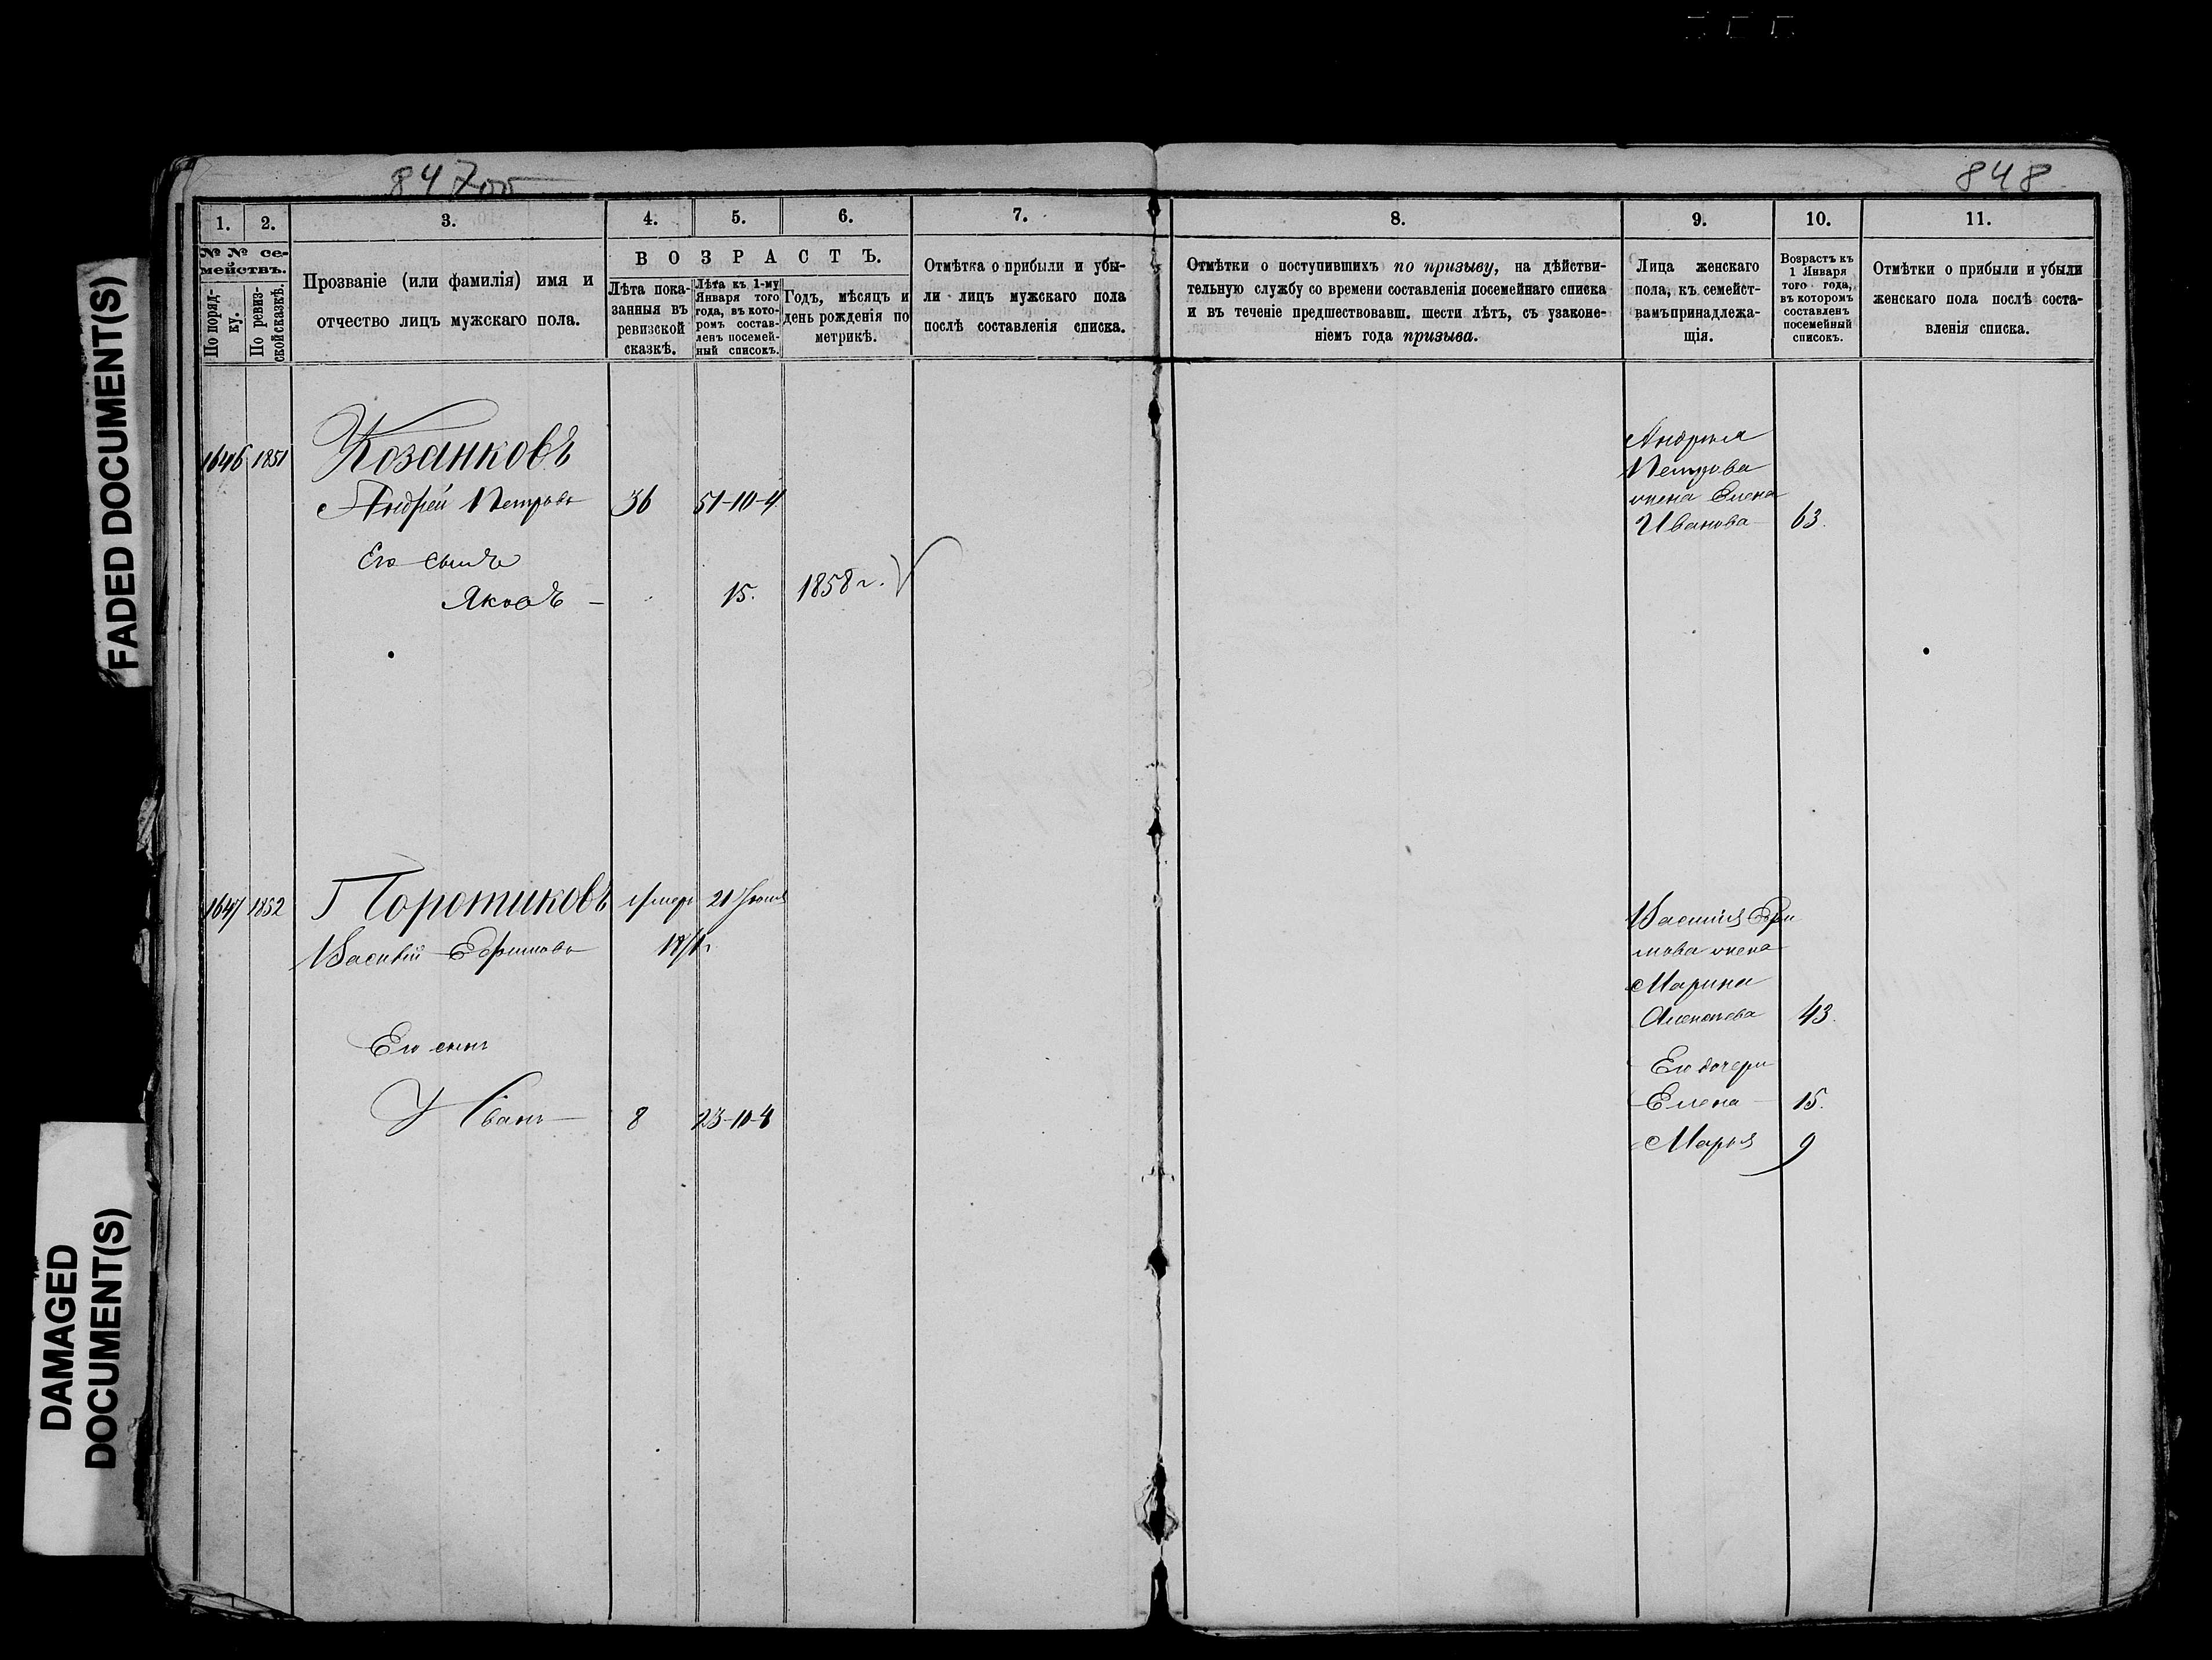 847об
848
FADED DOCUMENT(S)
DAMAGED
DOCUMENT(S)
1.
2.
3.
4.
5.
6.
7.
8.
9.
10.
11.
№ № се-
мействъ.
По поряд-
ку.
По ревиз-
ской сказкѣ.
Прозваніе (или фамилія) имя и
отчество лицъ мужскаго пола.
ВОЗРАСТЪ.
Лѣта пока-
занныя въ
ревизской
сказкѣ.
Лѣта къ 1-му
Января того
года, въ кото-
ромъ состав-
ленъ посемей-
ный списокъ.
Годъ, мѣсяцъ и
день рожденія по
метрикѣ.
Отмѣтка о прибыли и убы-
ли лицъ мужскаго пола
послѣ составленія списка.
Отмѣтки о поступившихъ по призыву, на дѣйстви-
тельную службу со времени составленія посемейнаго списка
и въ теченіе предшествовавш. шести лѣтъ, съ узаконе-
ніемъ года призыва.
Лица женскаго
пола, къ семейст-
вамъ принадлежа-
щія.
Возрастъ къ
1 Января
того года,
въ которомъ
составленъ
посемейный
списокъ.
Отмѣтки о прибыли и убыли
женскаго пола послѣ соста-
вленія списка.
1646 1851 Козанковъ
Андрей Петровъ 36 51-10-4
Его сынъ
Яковъ — 15. 1858 г.
Андрея
Петрова
жена Елена
Иванова 63.
1647 1852 Поротиковъ умеръ 21 Іюня
Василій Ефимовъ
Его сынъ
Иванъ 8 23-10-4
Василія Ефи
мова жена
Марина
43.
Его дочери
Елена 15.
Марья 9